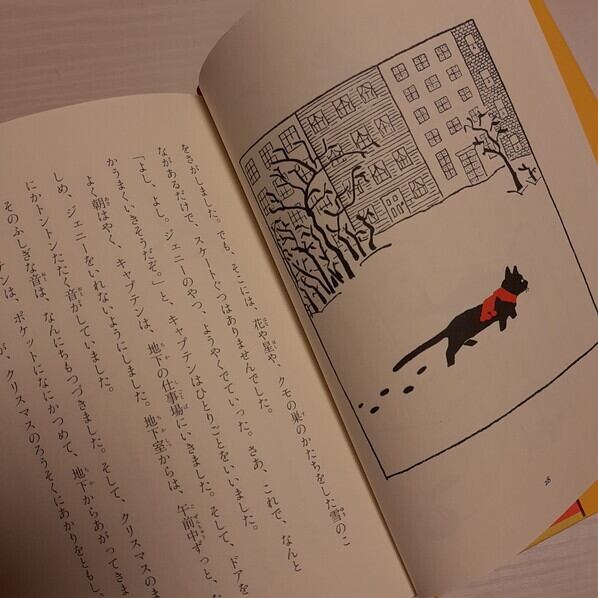 をさがしました。でも、そこには、花や星や、クモの巣のかたちをした雪のこ
ながあるだけで、スケートぐつはありませんでした。
「よし、よし。ジェニーのやつ、ようやくでていった。さあ、これで、なんと
かうまくいきそうだぞ。」と、キャプテンはひとりごとをいいました。
よく朝はやく、キャプテンは、地下の仕事場にいきました。そして、ドアを
しめ、ジェニーをいれないようにしました。地下室からは、午前中ずっと、な
にかトントンたたく音がしていました。
そのふしぎな音は、なんにちもつづきました。そして、クリスマスのま
テンは、ポケットになにかつめて、地下からあがってきま
が、クリスマスのろうそくにあかりをともし、
28